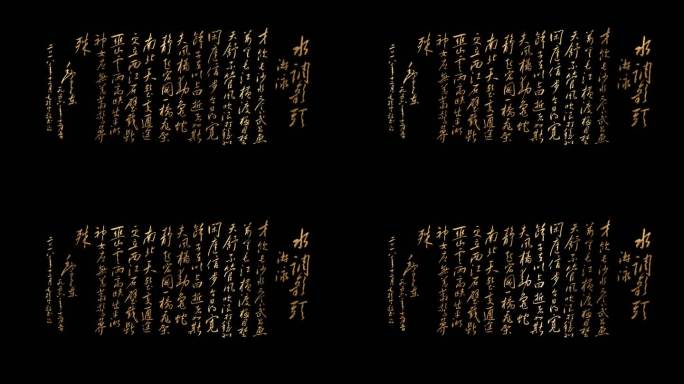 水调歌头
游泳
才饮长沙水又食武昌鱼
万里长江横渡极目楚
天舒不管风吹浪打胜似
闲庭信步今日得宽
馀子在川上曰逝者如斯
夫风樯动龟蛇
静起宏图一桥飞架
南北天堑变通途
更立西江石壁截断
巫山云雨高峡出平湖
神女应无恙当惊世界
殊
毛泽东
水调歌头
游泳
才饮长沙水又食武昌鱼
万里长江横渡极目楚
天舒不管风吹浪打胜似
闲庭信步今日得宽
馀子在川上曰逝者如斯
夫风樯动龟蛇
静起宏图一桥飞架
南北天堑变通途
更立西江石壁截断
巫山云雨高峡出平湖
神女应无恙当惊世界
殊
毛泽东
水调歌头
游泳
才饮长沙水又食武昌鱼
万里长江横渡极目楚
天舒不管风吹浪打胜似
闲庭信步今日得宽
馀子在川上曰逝者如斯
夫风樯动龟蛇
静起宏图一桥飞架
南北天堑变通途
更立西江石壁截断
巫山云雨高峡出平湖
神女应无恙当惊世界
殊
毛泽东
水调歌头
游泳
才饮长沙水又食武昌鱼
万里长江横渡极目楚
天舒不管风吹浪打胜似
闲庭信步今日得宽
馀子在川上曰逝者如斯
夫风樯动龟蛇
静起宏图一桥飞架
南北天堑变通途
更立西江石壁截断
巫山云雨高峡出平湖
神女应无恙当惊世界
殊
毛泽东